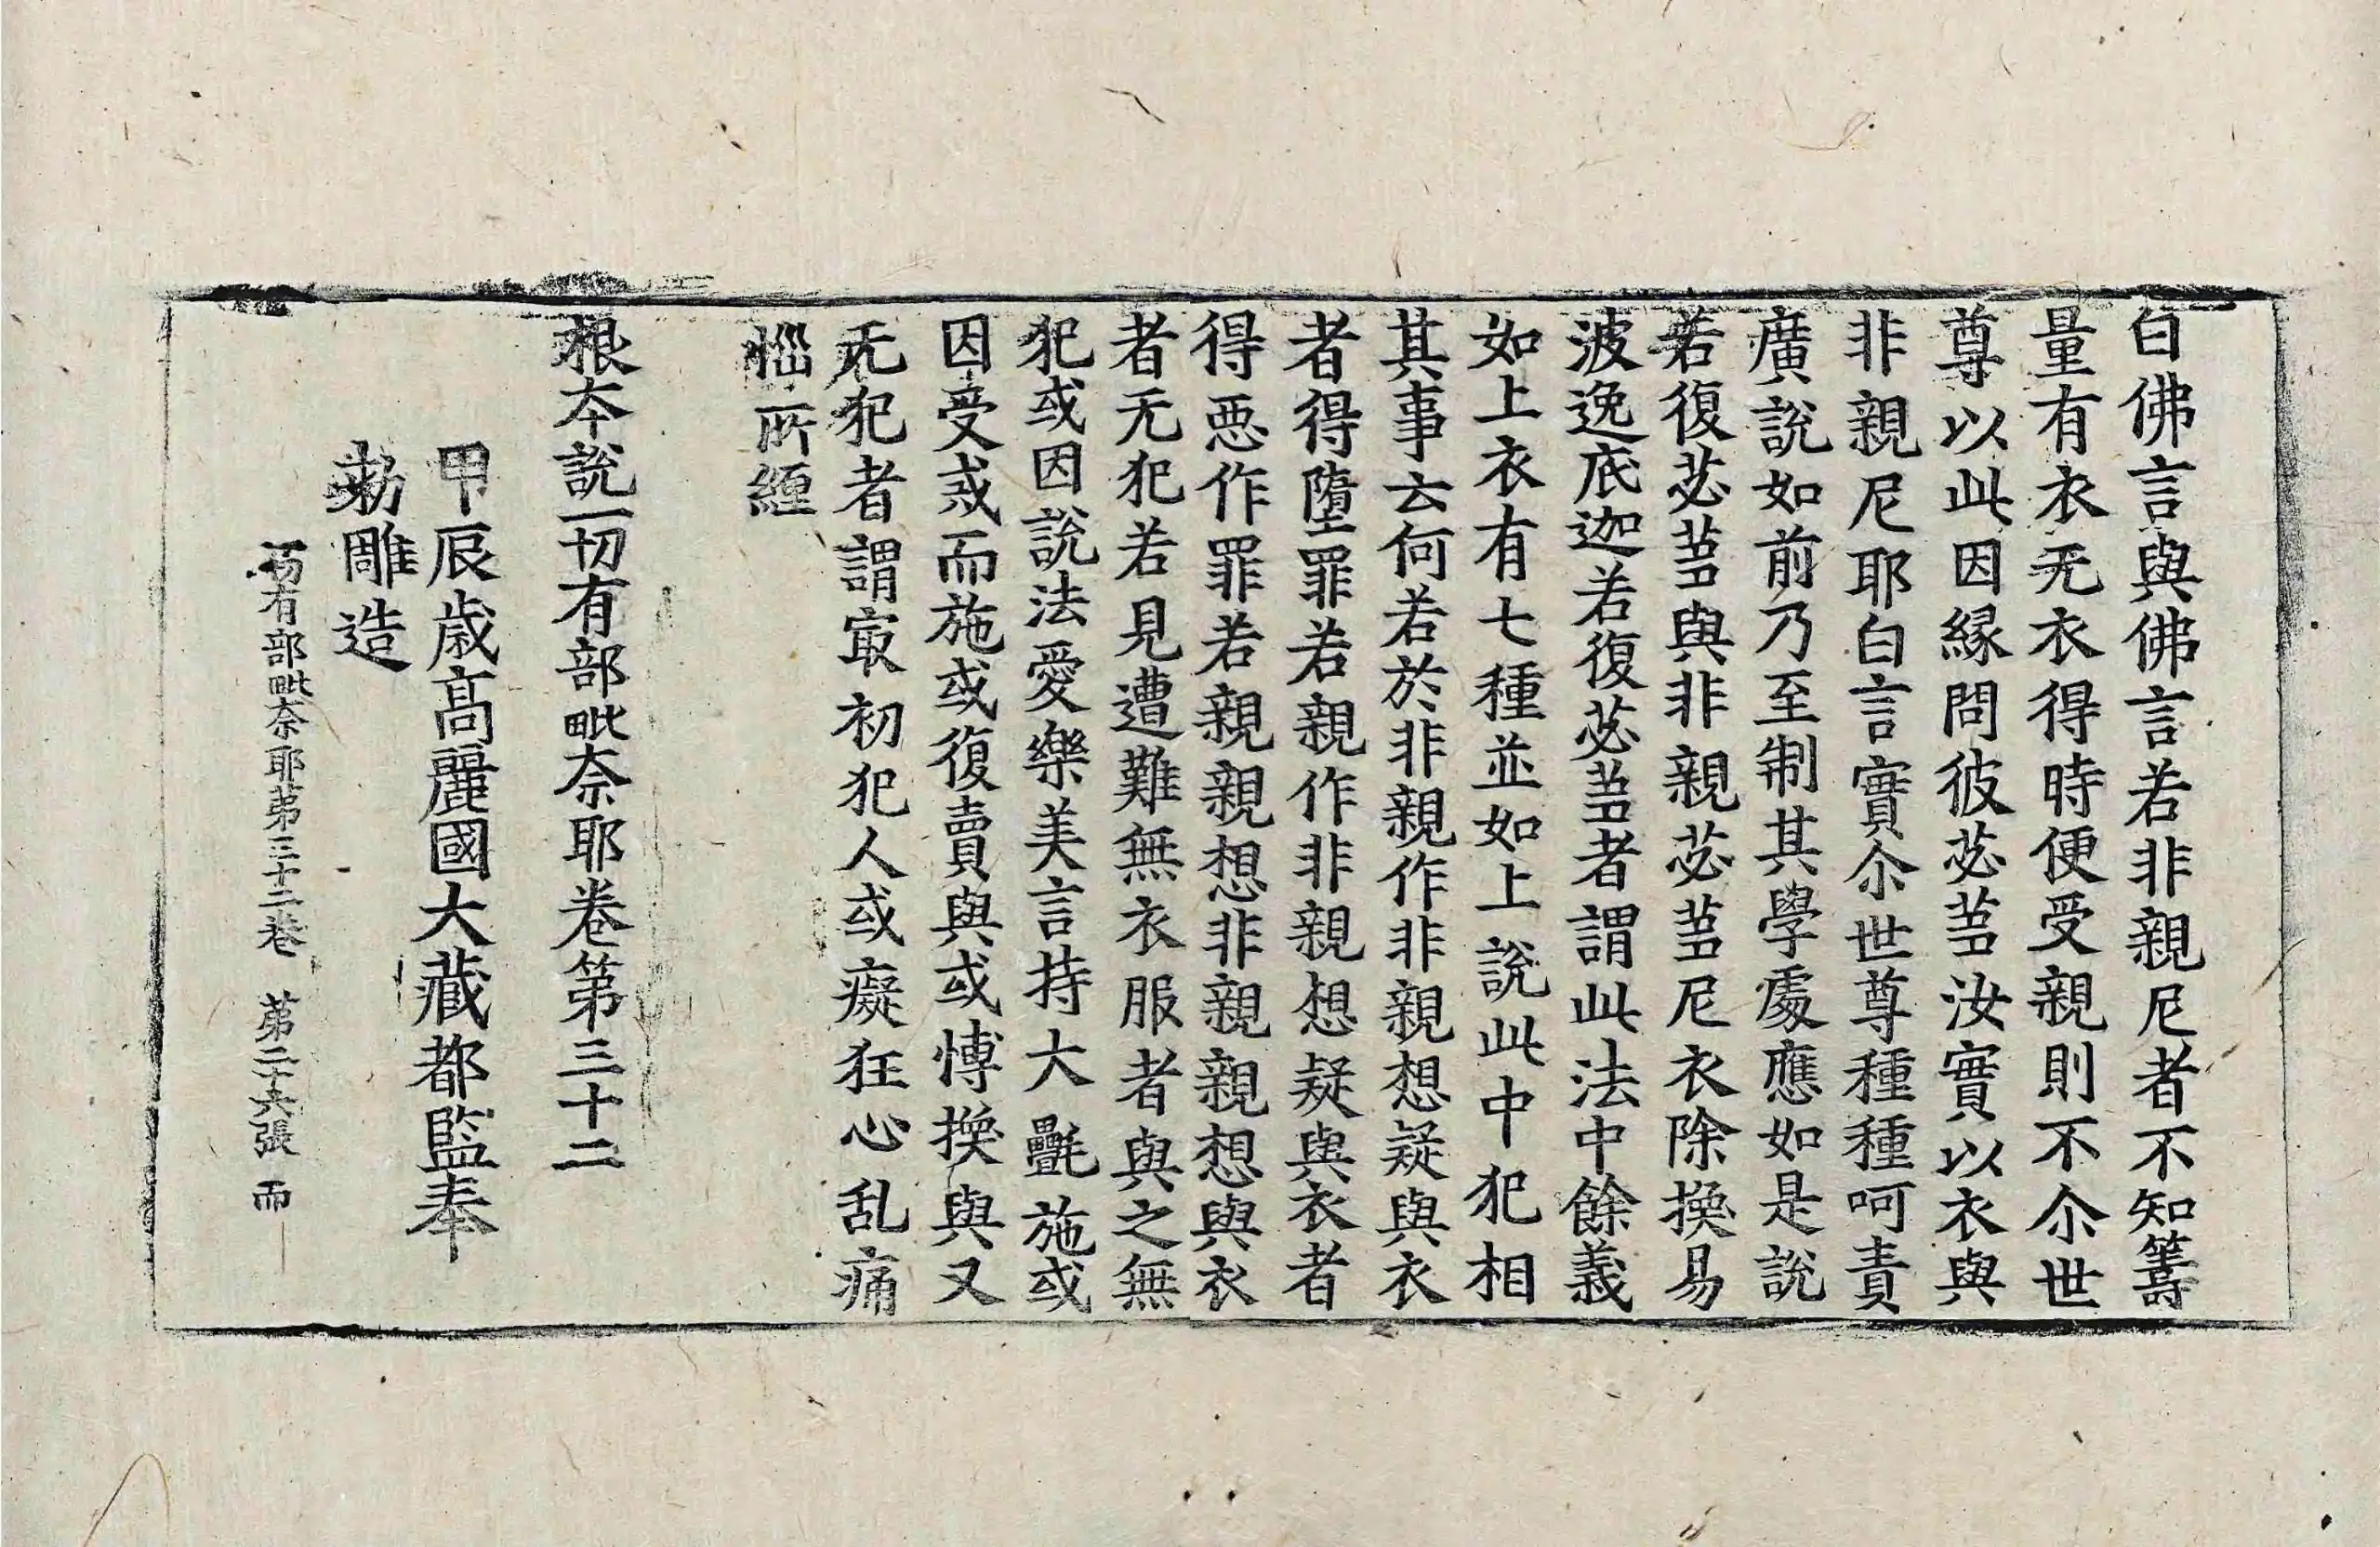 白佛言與佛言若非親尼者不知籌
量有衣无衣得時便受親則不尒世
尊以此因縁問彼苾芻汝實以衣與
非親尼耶白言實尒世尊種種呵責
廣說如前乃至制其學處應如是說
若復苾芻與非親苾芻尼衣除換易
波逸底迦若復苾芻者謂此法中餘義
如上衣有七種並如上說此中犯相
其事云何若於非親作非親想疑與衣
者得墮罪若親作非親想疑與衣者
得惡作罪若親親想非親親想與衣
者无犯若見遭難無衣服者與之無
犯或因說法愛樂美言持大㲲施或
因受戒而施或復賣與或愽換與又
无犯者謂㝡初犯人或癡狂心乱痛
惱所纏
根夲說一切有部毗奈耶卷第三十二
甲辰歲高麗國大藏都監奉
勑雕造
一切有部毗奈耶苐三十二卷 苐二十六張 而